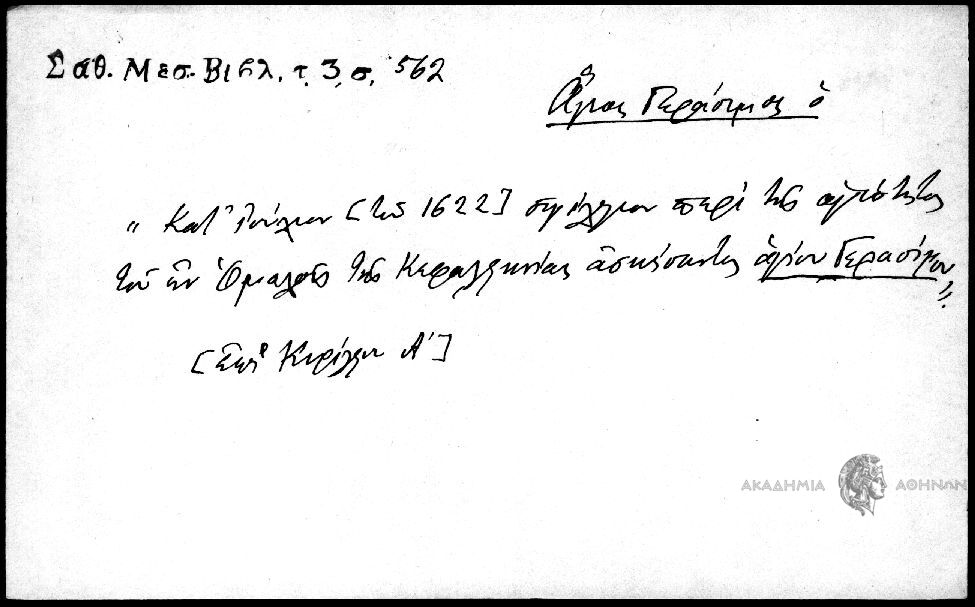 Σάθ. Μεσ. Βιβλ. τ. 3, σ. 562
Ἅγιος Γεράσιμος ὁ
" Κατ' Ἰούλιον [τοῦ 1622] σιγίλλιον περὶ τῆς ἁγιότητος
τοῦ ἐν Ὁμαλοῖς τῆς Κεφαλληνίας ἀσκήσαντος ἁγίου Γερασίμου "
[ἐπὶ Κυρίλλου Α']
ΑΚΑΔΗΜΙΑ ΑΘΗΝΩΝ